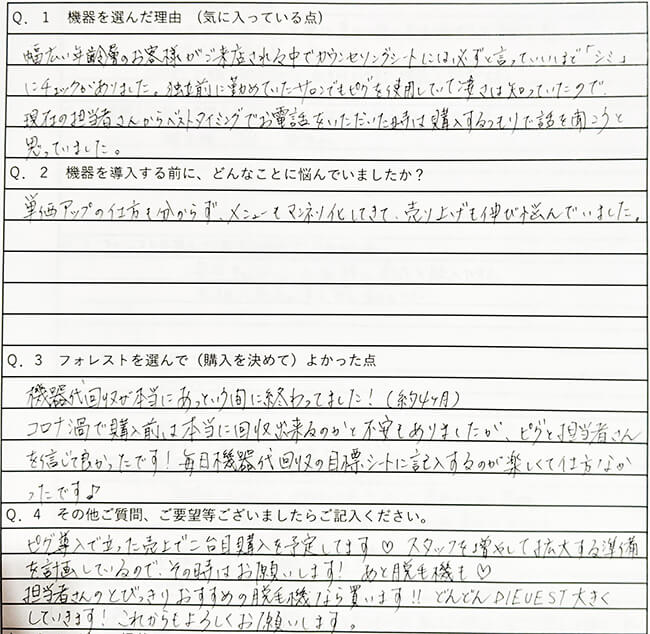 Q. 1 機器を選んだ理由 （気に入っている点）
幅広い年齢層のお客様がご来店される中でカウンセリングシートには必ずと言っていいほど「シミ」
にチェックがありました。独立前に勤めていたサロンでもピグを使用していて凄さは知っていたので、
現在の担当者さんからベストタイミングでお電話をいただいた時は購入するつもりで話を聞こうと
思っていました。
Q. 2 機器を導入する前に、どんなことに悩んでいましたか？
単価アップの仕方も分からず、メニューもマンネリ化してきて、売り上げも伸び悩んでいました。
Q. 3 フォレストを選んで（購入を決めて）よかった点
機器代回収が本当にあっという間に終わってました！（約4ヶ月）
コロナ渦で購入前は本当に回収出来るのかと不安もありましたが、ピグと担当者さん
を信じて良かったです！毎日機器代回収の目標シートに記入するのが楽しくて仕方なか
ったです♪
Q. 4 その他ご質問、ご要望等ございましたらご記入ください。
ピグ導入で立った売上で二台目購入を予定してます♡ スタッフを増やして拡大する準備
を計画しているので、その時はお願いします！ あと脱毛機も♡
担当者さんのとびっきりおすすめの脱毛機なら買います!! どんどん 大きく
していきます！これからもよろしくお願いします。